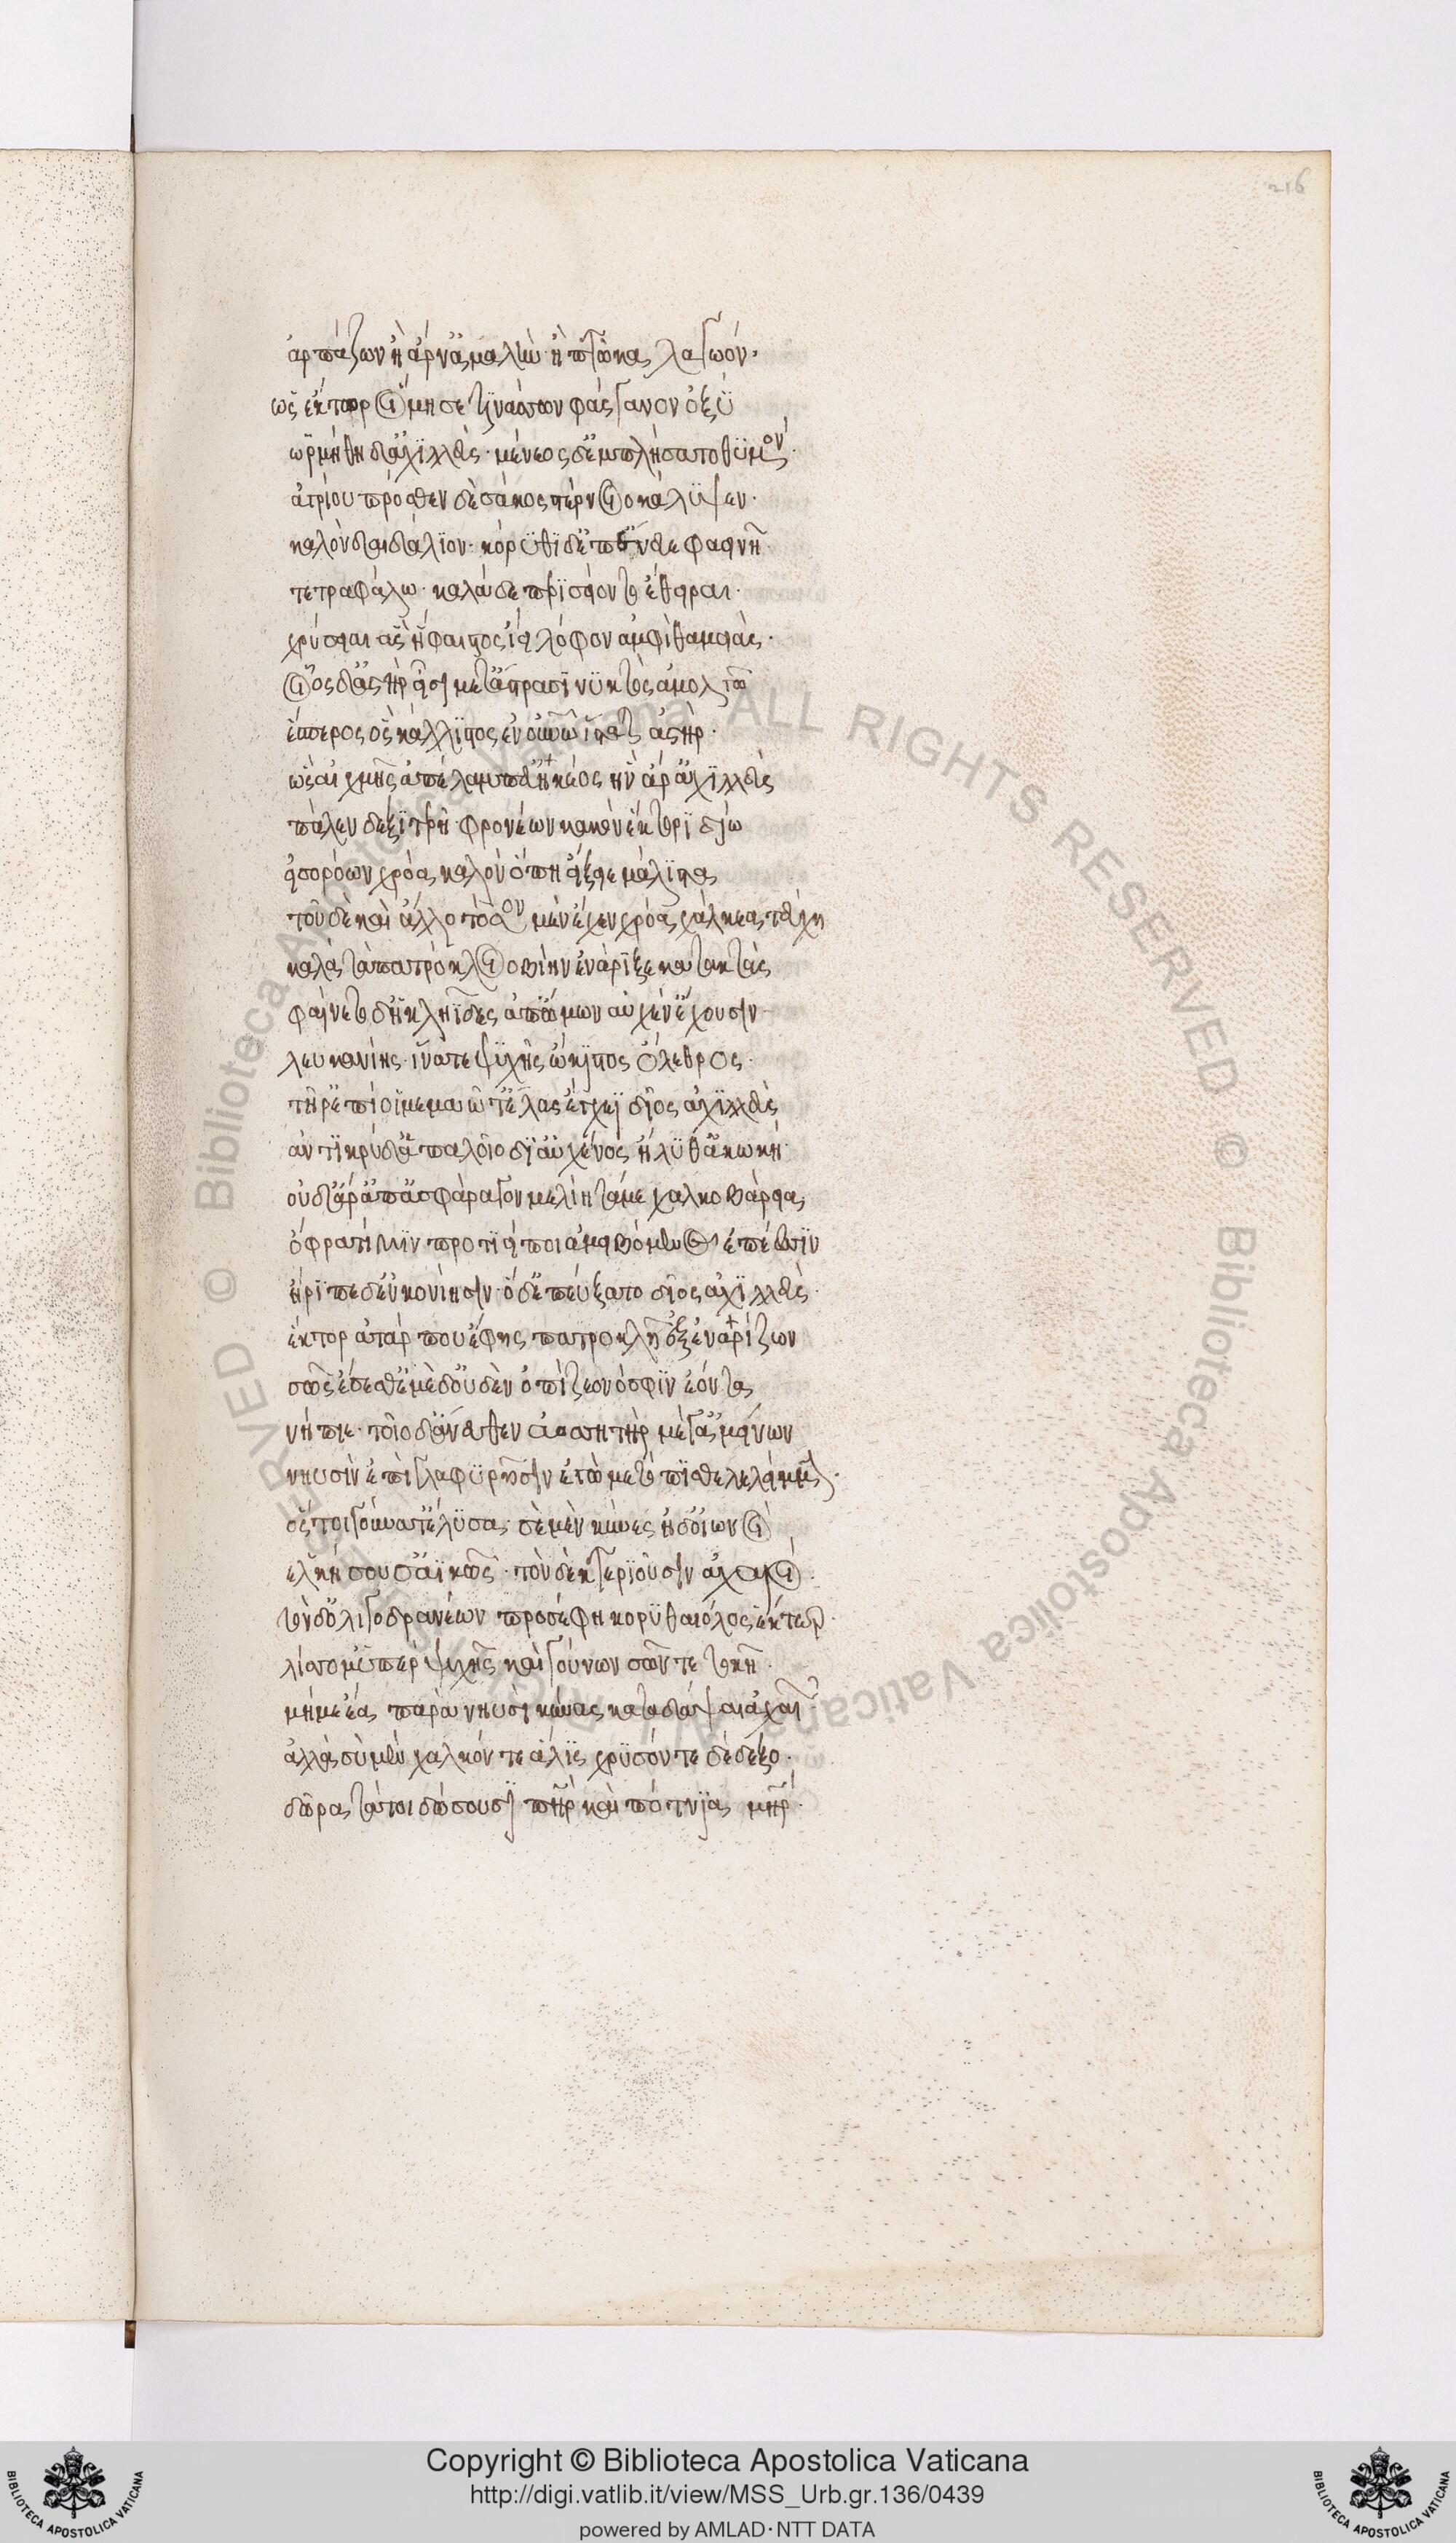 216
ἁρπάζων ἢ ἄρν᾽ ἀμαλὴν· ἢ πτῶκα λαγωόν·
ὣς ἕκτωρ οἴμησε τινάσσων φάσγανον ὀξὺ
ὡρμήθη δ᾽ ἀχιλλεὺς· μένεος δ᾽ ἐμπλήσατο θυμὸν
ἀγρίου πρόσθεν δὲ σάκος στέρνοιο κάλυψεν·
καλὸν δαιδάλεον· κόρυθι δ᾽ ἐπένευε φαεινῇ
τετραφάλω· καλαὶ δὲ περισσείοντο ἔθειραι·
χρύσεαι ἃς ἥφαιστος ἵει λόφον ἀμφὶ θαμειάς·
οἷος δ᾽ ἀστὴρ εἶσι μετ᾽ ἀστράσι νυκτὸς ἀμολγῶ
ἕσπερος ὃς κάλλιστος ἐν οὐρανῶ ἵσταται ἀστὴρ·
ὣς αἰχμῆς ἀπέλαμπ᾽ εὐήκεος ἣν ἄρ ἀχιλλεὺς
πάλλεν δεξιτερῆ φρονέων κακὸν ἕκτορι δίω
εἰσορόων χρόα καλὸν ὅπη εἴξειε μάλιστα
τοῦ δὲ καὶ ἄλλο τόσον μὲν ἔχεν χρόα χάλκεα τεύχη
καλὰ τὰ πατρόκλοιο βίην ἐνάριξε κατακτάς
φαίνετο δ᾽ ἧ κληῗδες ἀπ᾽ ὤμων αὐχέν᾽ ἔχουσιν
λευκανίης· ἵνα τε ψυχῆς ὤκιστος ὄλεθρος·
τῆ ῥ᾽ ἐπὶ οἷ μεμαῶτ᾽ ἔλασ᾽ ἔγχεϊ δῖος ἀχιλλεὺς
ἀντικρὺ δ᾽ ἁπαλοῖο δι᾽ αὐχένος ἤλυθ᾽ ἀκωκή·
οὐδ᾽ ἄρ᾽ ἀπ᾽ ἀσφάραγον μελίη τάμε χαλκοβάρεια
ὄφρα τί μιν προτιείποι ἀμειβόμενος ἐπέεσσιν
ἤριπε δ᾽ ἐν κονίησιν· ὁ δ᾽ ἐπεύξατο δῖος ἀχιλλεὺς·
ἕκτορ ἀτάρ που ἔφης πατροκλῆ᾽ ἐξεναρίζων
σῶς ἔσεσθ᾽ ἐμὲ δ᾽ οὐδὲν ὀπίζεο νόσφιν ἐόντα
νήπιε· τοῖο δ᾽ ἄνευθεν ἀοσσητὴρ μέγ᾽ ἀμείνων
νηυσὶν ἐπὶ γλαφυρῇσιν ἐγὼ μετόπισθε λελείμμην·
ὅς τοι γούνατ᾽ ἔλυσα· σὲ μὲν κύνες ἠδ᾽ οἰωνοὶ
ἑλκήσουσ᾽ ἀϊκῶς· τὸν δὲ κτεριοῦσιν ἀχαιοί·
τὸν δ᾽ ὀλιγοδρανέων προσέφη κορυθαιόλος ἕκτωρ·
λίσσομ᾽ ὑπὲρ ψυχῆς καὶ γούνων σῶν τε τοκῆων·
μή με ἔα παρὰ νηυσὶ κύνας καταδάψαι ἀχαιῶν·
ἀλλὰ σὺ μὲν χαλκόν τε ἅλις χρυσόν τε δέδεξο·
δῶρα τά τοι δώσουσι πατὴρ καὶ πότνια μήτηρ·
Copyright © Biblioteca Apostolica Vaticana
http://digi.vatlib.it/view/MSS_Urb.gr.136/0439
powered by AMLAD·NTT DATA